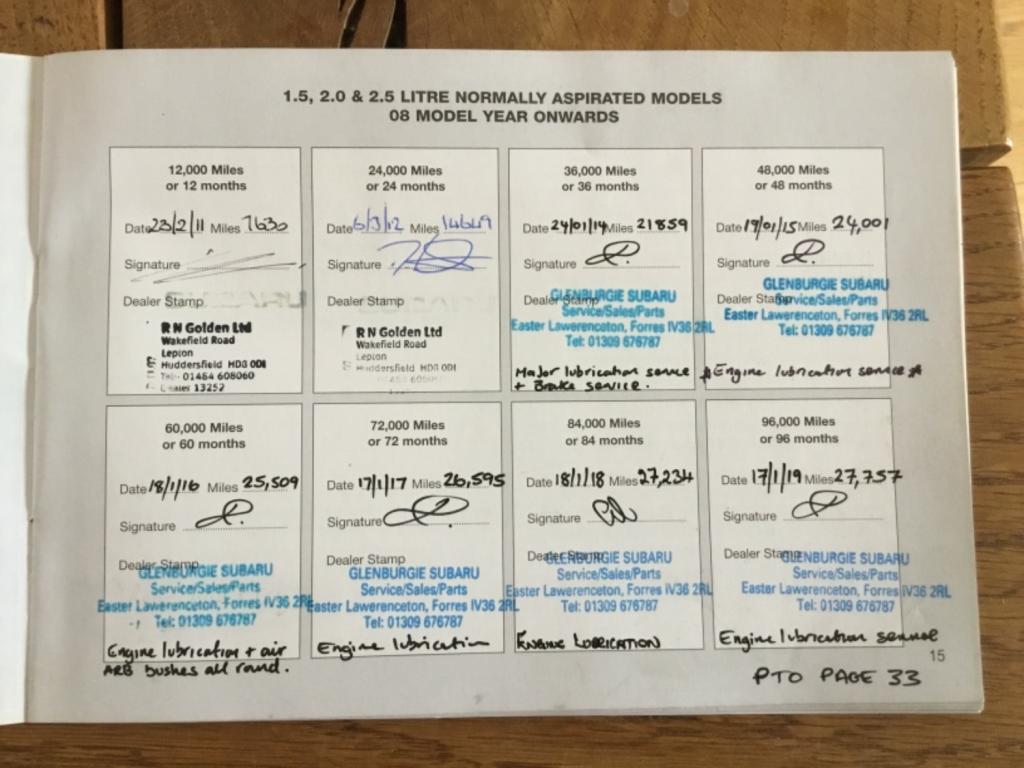 1.5, 2.0 & 2.5 LITRE NORMALLY ASPIRATED MODELS
08 MODEL YEAR ONWARDS
12,000 Miles
or 12 months
Date 23/2/11 Miles 7630
Signature
Dealer Stamp
RN Golden Ltd
Wakefield Road
Lepton
Huddersfield HD8 0DL
Tel: 01484 608060
13252
24,000 Miles
or 24 months
Date 6/3/12 Miles 14649
Signature
Dealer Stamp
RN Golden Ltd
Wakefield Road
Lepton
Huddersfield HD8 0DL
36,000 Miles
or 36 months
Date 24/01/14 Miles 21859
Signature
Dealer Stamp
GLENBURGIE SUBARU
Service/Sales/Parts
Easter Lawerenceton, Forres IV36 2RL
Tel: 01309 676787
Major lubrication service
+ Brake service.
48,000 Miles
or 48 months
Date 19/01/15 Miles 24,001
Signature
Dealer Stamp
GLENBURGIE SUBARU
Service/Sales/Parts
Easter Lawerenceton, Forres IV36 2RL
Tel: 01309 676787
* Engine lubrication service *
60,000 Miles
or 60 months
Date 18/1/16 Miles 25,509
Signature
Dealer Stamp
GLENBURGIE SUBARU
Service/Sales/Parts
Easter Lawerenceton, Forres IV36 2RL
Tel: 01309 676787
Engine lubrication + air
ARB bushes all round.
72,000 Miles
or 72 months
Date 17/1/17 Miles 26,595
Signature
Dealer Stamp
GLENBURGIE SUBARU
Service/Sales/Parts
Easter Lawerenceton, Forres IV36 2RL
Tel: 01309 676787
Engine lubrication
84,000 Miles
or 84 months
Date 18/1/18 Miles 27,234
Signature
Dealer Stamp
GLENBURGIE SUBARU
Service/Sales/Parts
Easter Lawerenceton, Forres IV36 2RL
Tel: 01309 676787
ENGINE LUBRICATION
96,000 Miles
or 96 months
Date 17/1/19 Miles 27,757
Signature
Dealer Stamp
GLENBURGIE SUBARU
Service/Sales/Parts
Easter Lawerenceton, Forres IV36 2RL
Tel: 01309 676787
Engine lubrication service
15
PTO PAGE 33